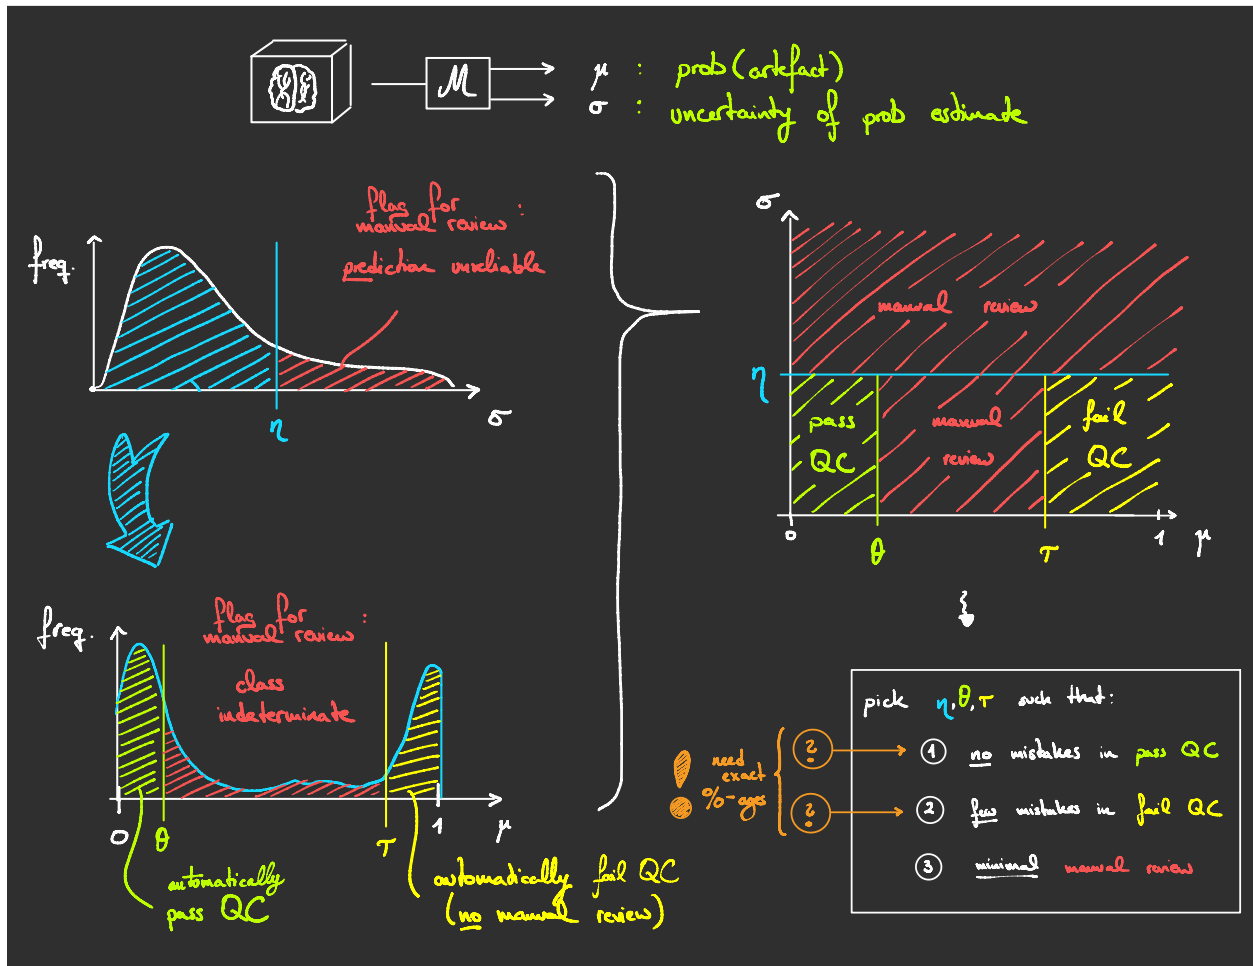 M
μ : prob(artefact)
σ : uncertainty of prob estimate
flag for
manual review:
prediction unreliable
freq.
η
σ
freq.
flag for
manual review:
class
indeterminate
0
θ
τ
1
μ
automatically
pass QC
automatically fail QC
(no manual review)
σ
manual review
η
pass
QC
manual
review
fail
QC
0
θ
τ
1
μ
pick η, θ, τ such that:
1 no mistakes in pass QC
2 few mistakes in fail QC
3 minimal manual review
! need
exact
%-ages
?
?